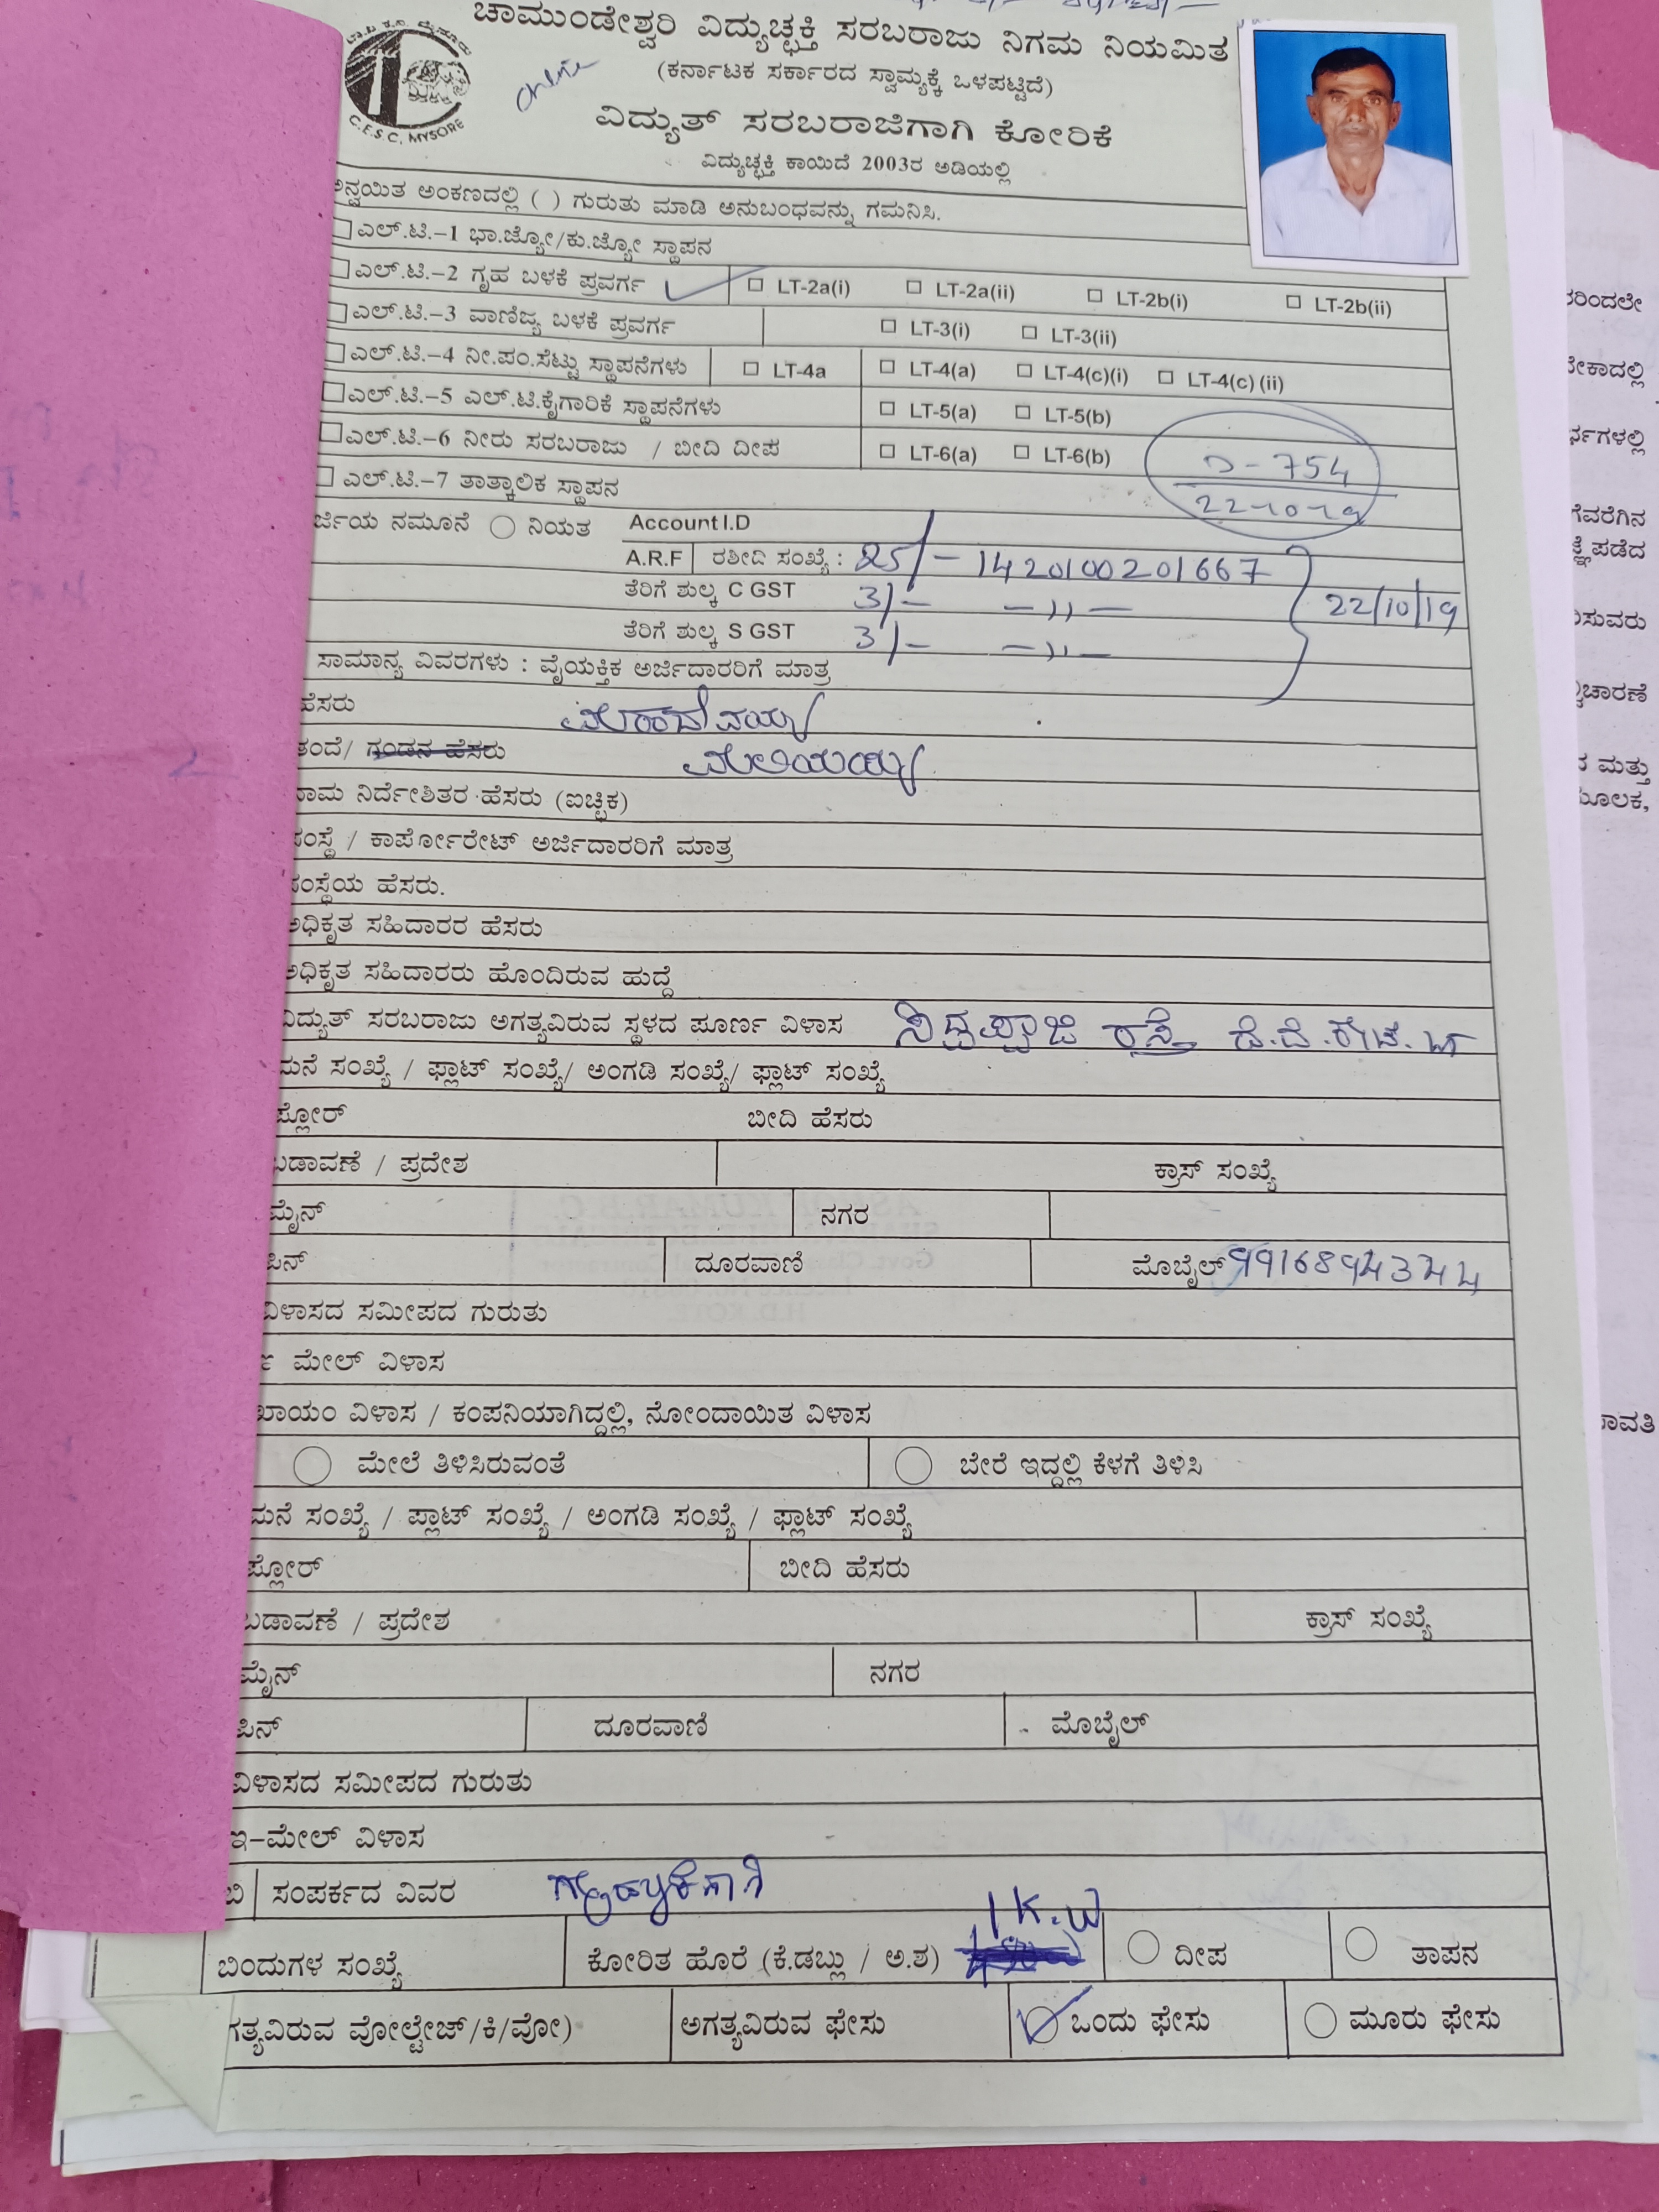 ಚಾಮುಂಡೇಶ್ವರಿ ವಿದ್ಯುಚ್ಛಕ್ತಿ ಸರಬರಾಜು ನಿಗಮ ನಿಯಮಿತ
(ಕರ್ನಾಟಕ ಸರ್ಕಾರದ ಸ್ವಾಮ್ಯಕ್ಕೆ ಒಳಪಟ್ಟಿದೆ)
C.E.S.C. MYSORE
ವಿದ್ಯುತ್ ಸರಬರಾಜಿಗಾಗಿ ಕೋರಿಕೆ
ವಿದ್ಯುಚ್ಛಕ್ತಿ ಕಾಯಿದೆ 2003ರ ಅಡಿಯಲ್ಲಿ
ಅನ್ವಯಿತ ಅಂಕಣದಲ್ಲಿ ( ) ಗುರುತು ಮಾಡಿ ಅನುಬಂಧವನ್ನು ಗಮನಿಸಿ.
ಎಲ್.ಟಿ.-1 ಭಾ.ಜ್ಯೋ/ಕು.ಜ್ಯೋ ಸ್ಥಾಪನ
ಎಲ್.ಟಿ.-2 ಗೃಹ ಬಳಕೆ ಪ್ರವರ್ಗ LT-2a(i) LT-2a(ii) LT-2b(i) LT-2b(ii)
ಎಲ್.ಟಿ.-3 ವಾಣಿಜ್ಯ ಬಳಕೆ ಪ್ರವರ್ಗ LT-3(i) LT-3(ii)
ಎಲ್.ಟಿ.-4 ನೀ.ಪಂ.ಸೆಟ್ಟು ಸ್ಥಾಪನೆಗಳು LT-4a LT-4(a) LT-4(c)(i) LT-4(c) (ii)
ಎಲ್.ಟಿ.-5 ಎಲ್.ಟಿ.ಕೈಗಾರಿಕೆ ಸ್ಥಾಪನೆಗಳು LT-5(a) LT-5(b)
ಎಲ್.ಟಿ.-6 ನೀರು ಸರಬರಾಜು / ಬೀದಿ ದೀಪ LT-6(a) LT-6(b)
D-754
22-10-19
ಎಲ್.ಟಿ.-7 ತಾತ್ಕಾಲಿಕ ಸ್ಥಾಪನ
ರ್ಜಿಯ ನಮೂನೆ ನಿಯತ Account I.D
A.R.F ರಶೀದಿ ಸಂಖ್ಯೆ : 25/- 1420100201667
ತೆರಿಗೆ ಶುಲ್ಕ C GST 3/- -,,- 22/10/19
ತೆರಿಗೆ ಶುಲ್ಕ S GST 3/- -,,-
ಸಾಮಾನ್ಯ ವಿವರಗಳು : ವೈಯಕ್ತಿಕ ಅರ್ಜಿದಾರರಿಗೆ ಮಾತ್ರ
ಹೆಸರು ಮಹಾದೇವಯ್ಯ
ತಂದೆ/ ಗಂಡನ ಹೆಸರು ಮಲಿಯಯ್ಯ
ನಾಮ ನಿರ್ದೇಶಿತರ ಹೆಸರು (ಐಚ್ಛಿಕ)
ಸಂಸ್ಥೆ / ಕಾರ್ಪೋರೇಟ್ ಅರ್ಜಿದಾರರಿಗೆ ಮಾತ್ರ
ಸಂಸ್ಥೆಯ ಹೆಸರು.
ಅಧಿಕೃತ ಸಹಿದಾರರ ಹೆಸರು
ಅಧಿಕೃತ ಸಹಿದಾರರು ಹೊಂದಿರುವ ಹುದ್ದೆ
ವಿದ್ಯುತ್ ಸರಬರಾಜು ಅಗತ್ಯವಿರುವ ಸ್ಥಳದ ಪೂರ್ಣ ವಿಳಾಸ ಸಿದ್ದಪ್ಪಾಜಿ ರಸ್ತೆ
ಮನೆ ಸಂಖ್ಯೆ / ಫ್ಲಾಟ್ ಸಂಖ್ಯೆ/ ಅಂಗಡಿ ಸಂಖ್ಯೆ/ ಫ್ಲಾಟ್ ಸಂಖ್ಯೆ
ಫ್ಲೋರ್ ಬೀದಿ ಹೆಸರು
ಬಡಾವಣೆ / ಪ್ರದೇಶ ಕ್ರಾಸ್ ಸಂಖ್ಯೆ
ಮೈನ್ ನಗರ
ಪಿನ್ ದೂರವಾಣಿ ಮೊಬೈಲ್ 9916894344
ವಿಳಾಸದ ಸಮೀಪದ ಗುರುತು
ಮೇಲ್ ವಿಳಾಸ
ಖಾಯಂ ವಿಳಾಸ / ಕಂಪನಿಯಾಗಿದ್ದಲ್ಲಿ, ನೋಂದಾಯಿತ ವಿಳಾಸ
ಮೇಲೆ ತಿಳಿಸಿರುವಂತೆ ಬೇರೆ ಇದ್ದಲ್ಲಿ ಕೆಳಗೆ ತಿಳಿಸಿ
ಮನೆ ಸಂಖ್ಯೆ / ಪ್ಲಾಟ್ ಸಂಖ್ಯೆ / ಅಂಗಡಿ ಸಂಖ್ಯೆ / ಫ್ಲಾಟ್ ಸಂಖ್ಯೆ
ಫ್ಲೋರ್ ಬೀದಿ ಹೆಸರು
ಬಡಾವಣೆ / ಪ್ರದೇಶ ಕ್ರಾಸ್ ಸಂಖ್ಯೆ
ಮೈನ್ ನಗರ
ಪಿನ್ ದೂರವಾಣಿ ಮೊಬೈಲ್
ವಿಳಾಸದ ಸಮೀಪದ ಗುರುತು
ಇ-ಮೇಲ್ ವಿಳಾಸ
ಬಿ ಸಂಪರ್ಕದ ವಿವರ
1 K.W
ಬಿಂದುಗಳ ಸಂಖ್ಯೆ ಕೋರಿತ ಹೊರೆ (ಕೆ.ಡಬ್ಲು / ಅ.ಶ) ದೀಪ ತಾಪನ
ಗತ್ಯವಿರುವ ವೋಲ್ಟೇಜ್/ಕಿ/ವೋ) ಅಗತ್ಯವಿರುವ ಫೇಸು ಒಂದು ಫೇಸು ಮೂರು ಫೇಸು